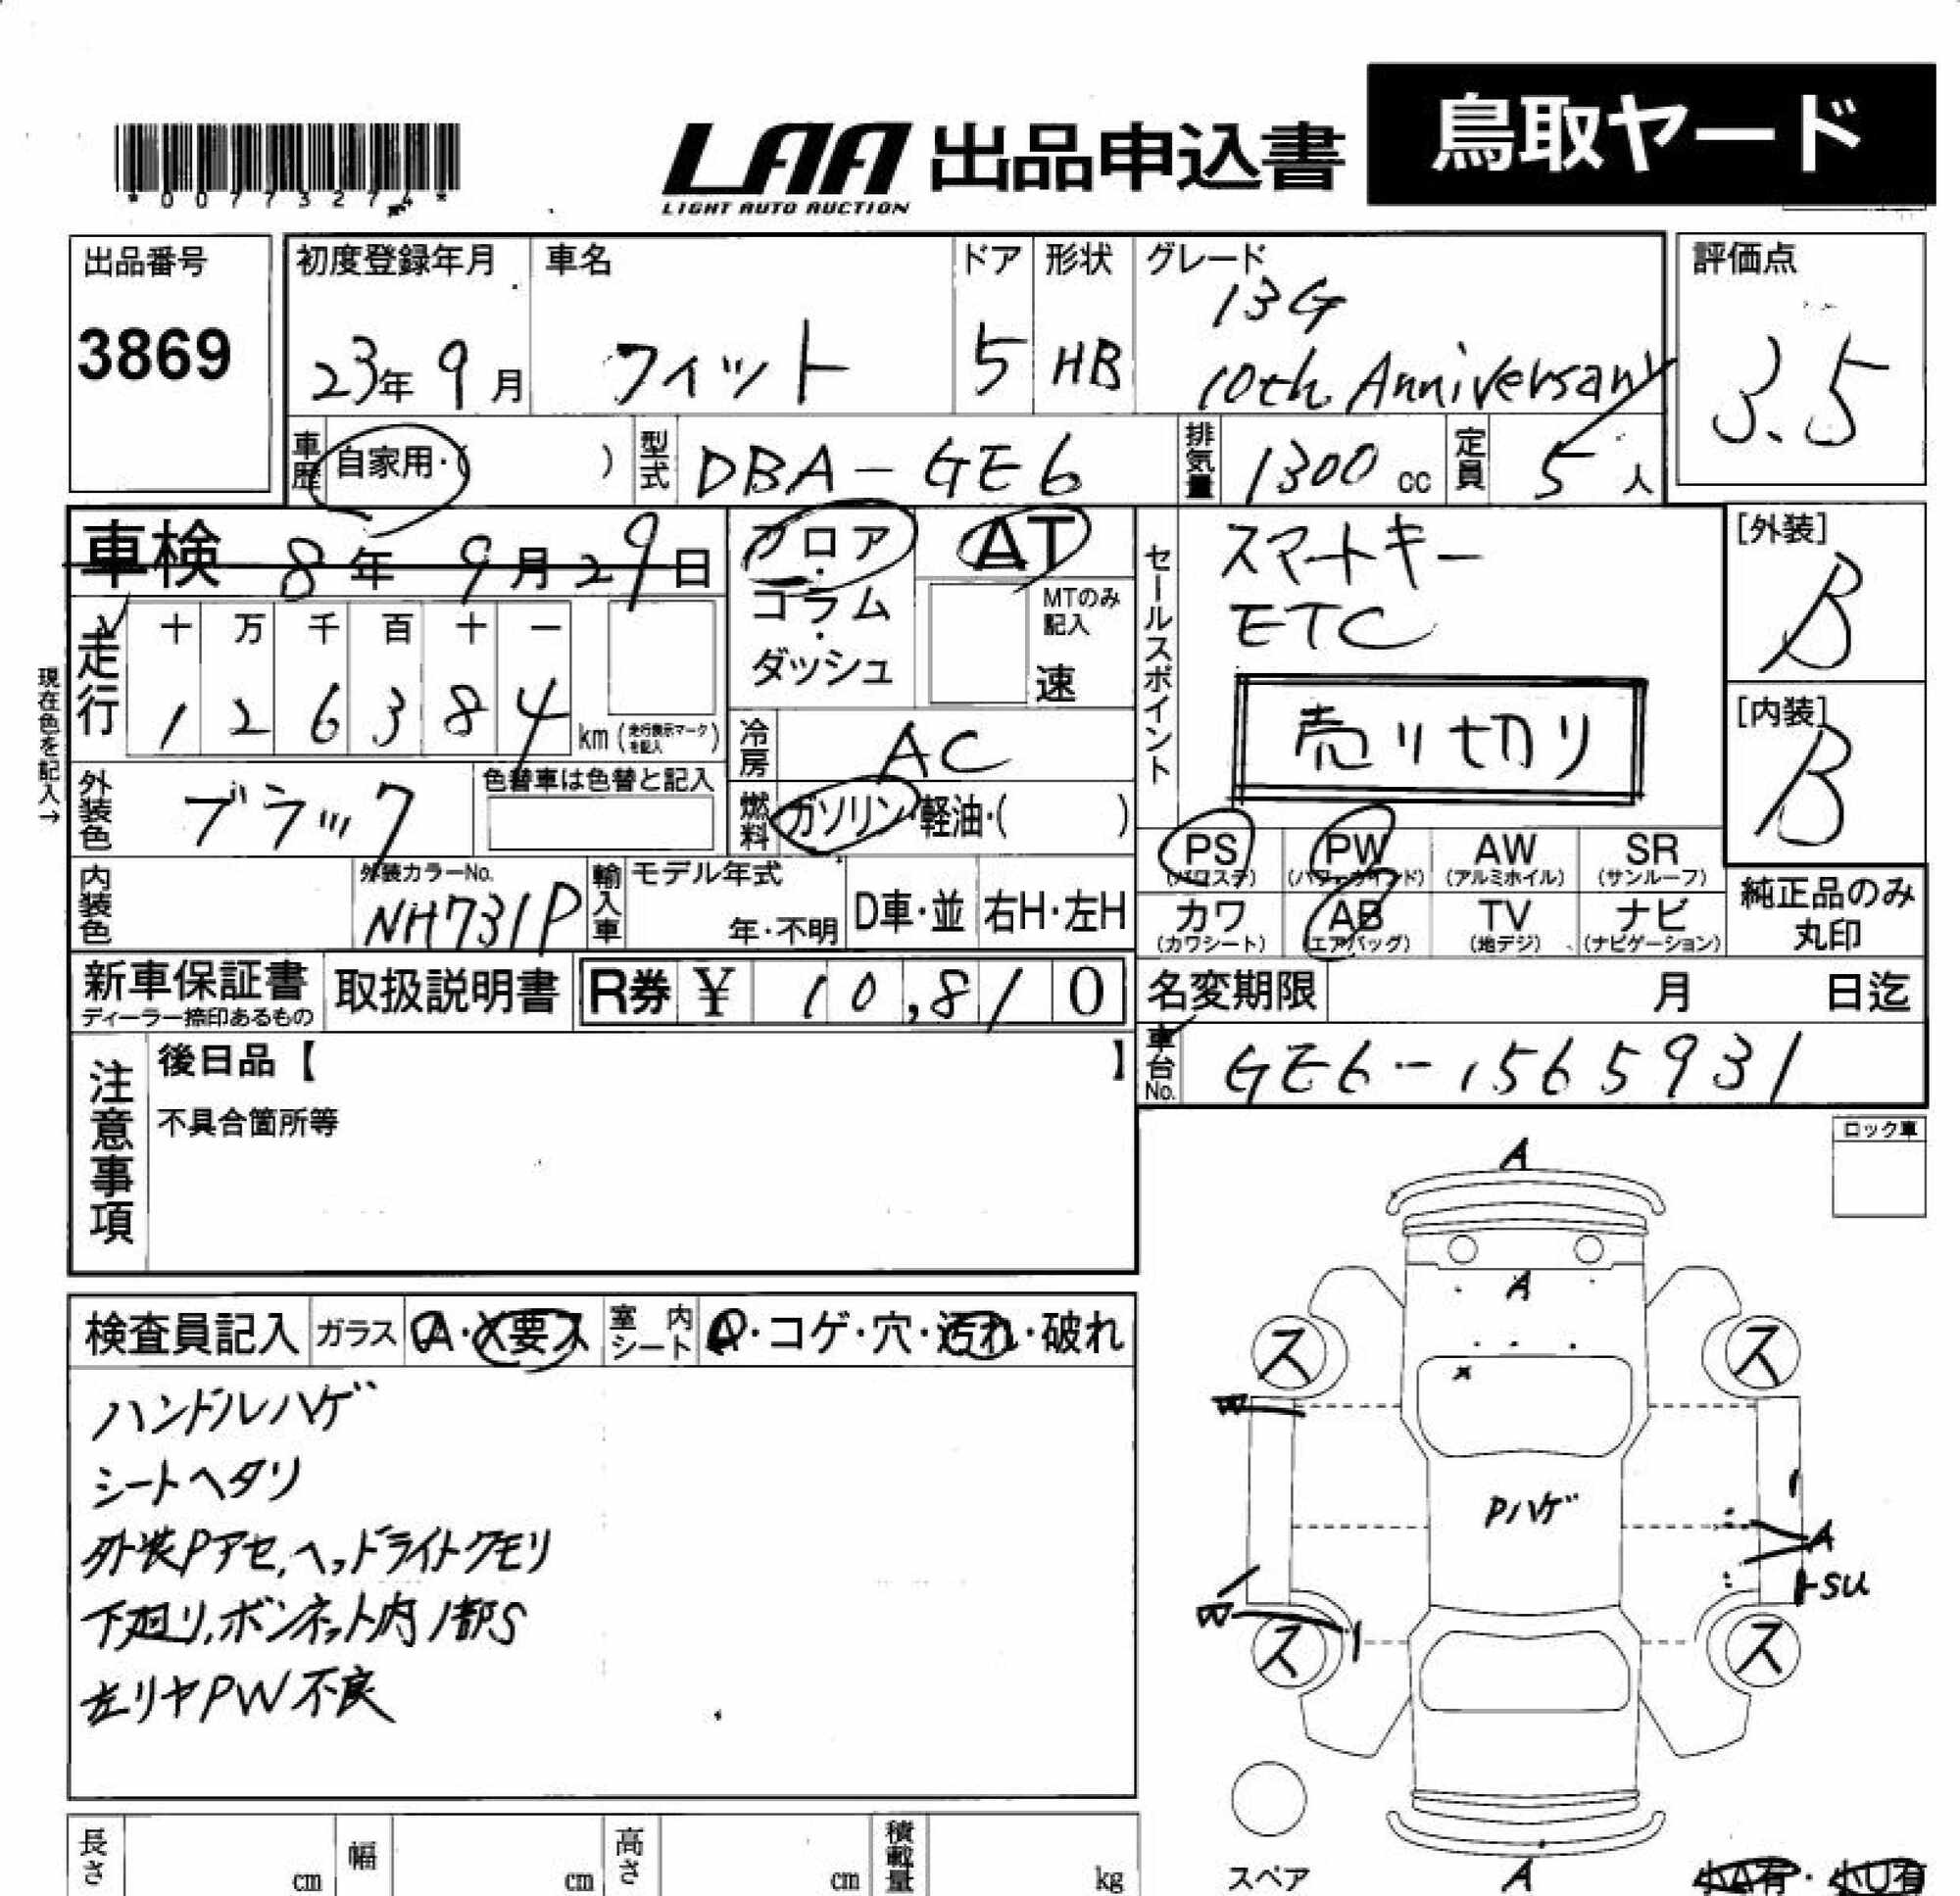 *00773274*
LAA 出品申込書
LIGHT AUTO AUCTION
鳥取ヤード
出品番号
3869
初度登録年月
23年 9月
車名
フィット
ドア
5
形状
HB
グレード
13G
10th Anniversary
評価点
3.5
車歴
自家用・( )
型式
DBA-GE6
排気量
1300 cc
定員
5 人
車検 8年 9月 29日
現在色を記入→
走行
十 万 千 百 十 一
1 2 6 3 8 4 km (走行表示マークを記入)
フロア・コラム・ダッシュ
AT
MTのみ記入
速
冷房
AC
燃料
ガソリン・軽油・( )
外装色
ブラック
色替車は色替と記入
内装色
外装カラーNo.
NH731P
輸入車
モデル年式
年・不明
D車・並
右H・左H
セールスポイント
スマートキー
ETC
売り切り
[外装]
B
[内装]
B
PS (パワステ)
PW (パワーウインド)
AW (アルミホイル)
SR (サンルーフ)
カワ (カワシート)
AB (エアバッグ)
TV (地デジ)
ナビ (ナビゲーション)
純正品のみ
丸印
新車保証書
ディーラー捺印あるもの
取扱説明書
R券 ¥ 10,810
名変期限 月 日迄
車台No.
GE6-1565931
注意事項
後日品【 】
不具合箇所等
ロック車
検査員記入
ガラス
A・X要ス
室内シート
A・コゲ・穴・汚れ・破れ
ハンドルハゲ
シートヘタリ
外装Pアセ,ヘッドライトクモリ
下廻り,ボンネット内1部S
左リヤPW不良
A
A
ス
ス
x
W
Pハゲ
A
SU
W
ス
ス
スペア
A
小A有・小U有
長さ cm
幅 cm
高さ cm
積載量 kg